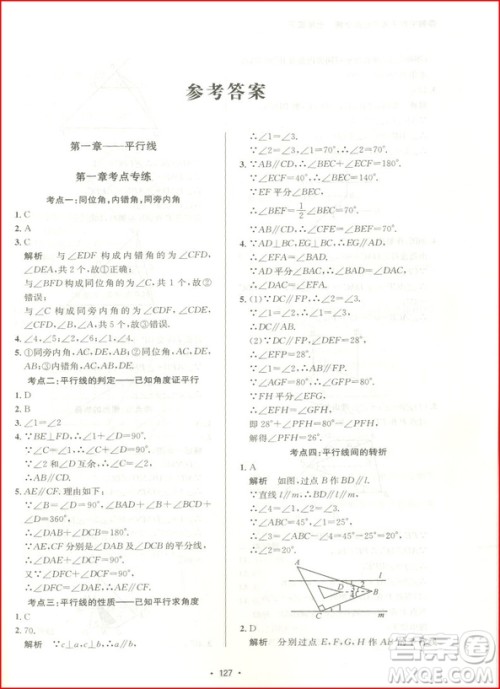 参考答案
第一章——平行线
第一章考点专练
考点一:同位角,内错角,同旁内角
1. C
2. A
3. C
解析 与∠EDF 构成内错角的为∠CFD,
∠DEA,共 2 个,故①正确;
与∠BFD 构成同位角的为∠CAE,共 1 个,故②
错误;
与∠CFD 构成同旁内角的为∠CDF, ∠CDE,
∠C,共 3 个,故③错误.
4. ∠4,∠5,∠4,∠5.
5. ①同旁内角,AC,DE,AB. ②内错角,AB,AC,DE.
③同位角,AC,AB,DE.
考点二:平行线的判定——已知角度证平行
1. D
2. B
3. ∠1=∠2
4. ∵BE⊥FD, ∴∠1+∠D=90°.
∵∠2 和∠D 互余,∴∠2+∠D=90°,
∴∠1=∠2.
5. AE∥CF. 理由如下:
∵∠DAB+∠D+∠DCB+∠B=360°,
∴∠DAB+∠DCB=180°.
∵AE、CF 分别是∠DAB 及∠DCB 的平分线,
∴∠DAE+∠DCF=90°.
又∵∠DFC+∠DCF=90°,
∴∠DAE=∠DFC,∴AE∥CF.
考点三:平行线的性质——已知平行求角度
1. C
2. 70,
解析 ∵c⊥a,c⊥b,∴a∥b,
∴∠1=∠3.
∵∠2=∠3,∴∠2=∠1=70°.
3. ∵AB∥CD, ∴∠BEC+∠ECF=180°.
∵∠ECF=40°,∴∠BEC=140°.
∵EF 平分∠BEC,
∴∠BEF=1/2∠BEC=70°.
∵AB∥CD,∴∠EFC=∠BEF=70°.
4. ∵AD⊥BC,EG⊥BC,∴AD∥EG,
∴∠1=∠2,∠E=∠3.
∵∠E=∠1,∴∠2=∠3.
5. (1)∵DC∥FP,∴∠3=∠2.
∵∠1=∠2,∴∠3=∠1,
∴DC∥AB.
(2)∵DC∥FP,
∴∠DEF=∠EFP=28°.
∵AB∥FP,∴∠AGF=∠GFP=80°.
∵FH 平分∠EFG,
∴∠EFH=∠GFH,
即 28°+∠PFH=80°-∠PFH,
解得∠PFH=26°.
考点四:平行线间的转折
1. A
解析 如图,过点 B 作BD∥l.
∵直线 l∥m,∴BD∥l∥m,
∴∠4=∠1=25°.
∵∠ABC=45°,
∴∠3=∠ABC-∠4=45°-25°=20°,
∴∠2=∠3=20°.
2. D
解析 分别过点 E、F、G、H 作
· 127 ·